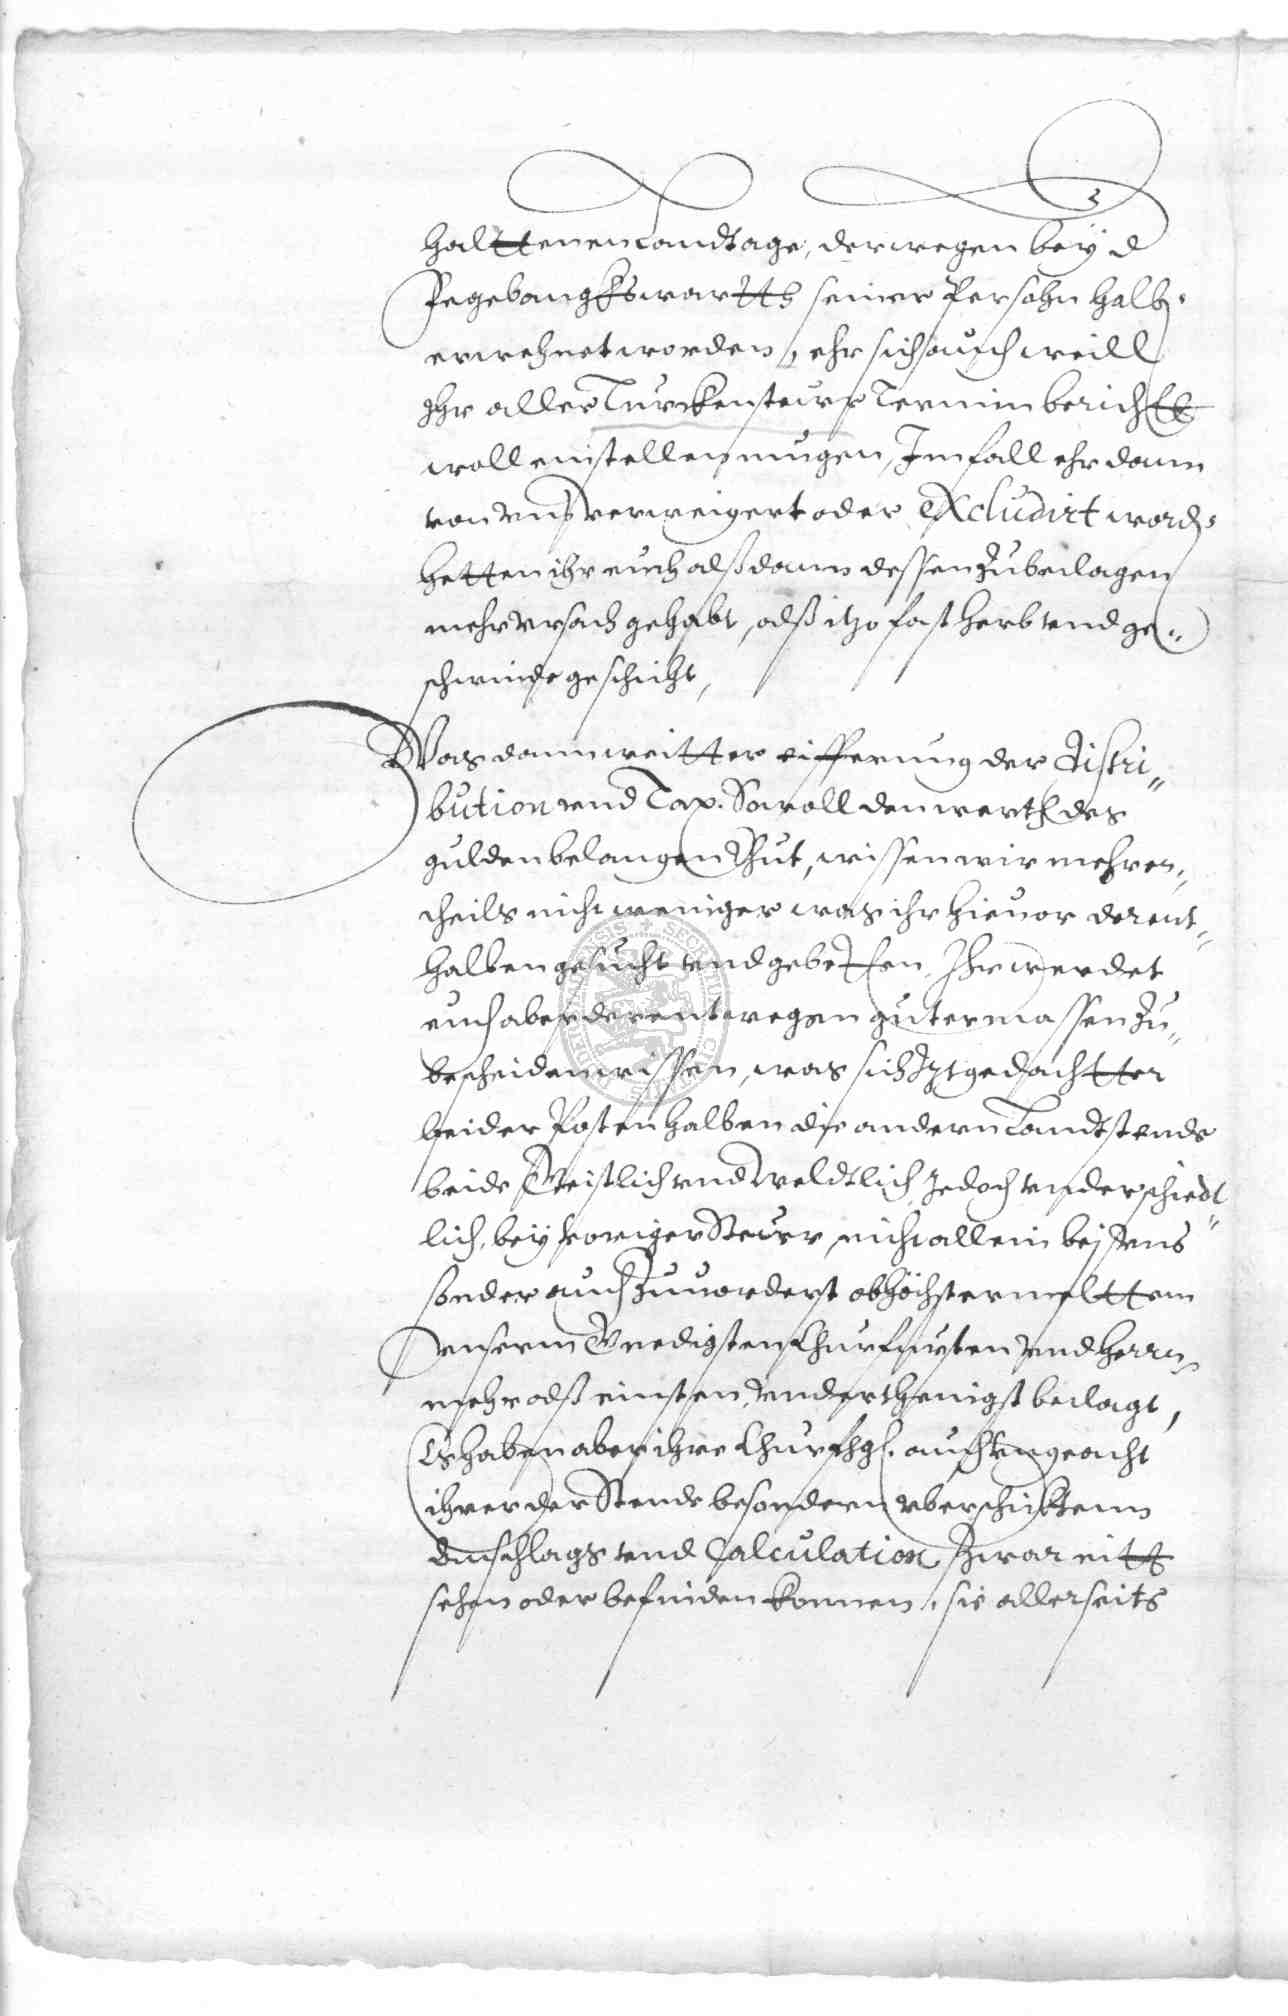 halttenen Landtage, derwegen bey d
gegewarttß seiner Persohn halb
erwehnet worden, ehr sich auch weill
Ihr aller Turckensteurr Termin bericht
woll einstellen mugen, Im fall ehr dann
von vnß verweigert oder excludirt word
hetten ihr euch alßdann dessen zubeclagen
mehr vrsach gehabt, alß itzo fast herb vnd ge„
schwinde geschicht,
Was dann weitter eifferung der distri„
bution vnd Tax. Sowoll den werth des
gulden belangen thut, wissen wir mehrer„
theils nicht weniger was ihr hieuor derent„
halben gesucht vnd gebetten, Ihr werdet
euch aber derentwegen gutermassen zu„
bescheiden wissen, was sich Itztgedachtter
beider Posten halben die andern Landtstende
beide Geistlich vnd Weldtlich Jedoch vnderschiedt„
lich, bey voriger Steurr, nicht allein bej vns
sonder auch zuuorderst obhöchstermeltten
vnserm Gnedigsten Churfursten vnd Herrn
mehr alß einsten, vnderthenigst beclagt,
Es haben aber ihre Churfhgl. auch vngeacht
ihrer der Stende besondern vberschickten
Vmschlags vnd Calculation, zwar nitt
sehen oder befinden konnen, sie allerseits